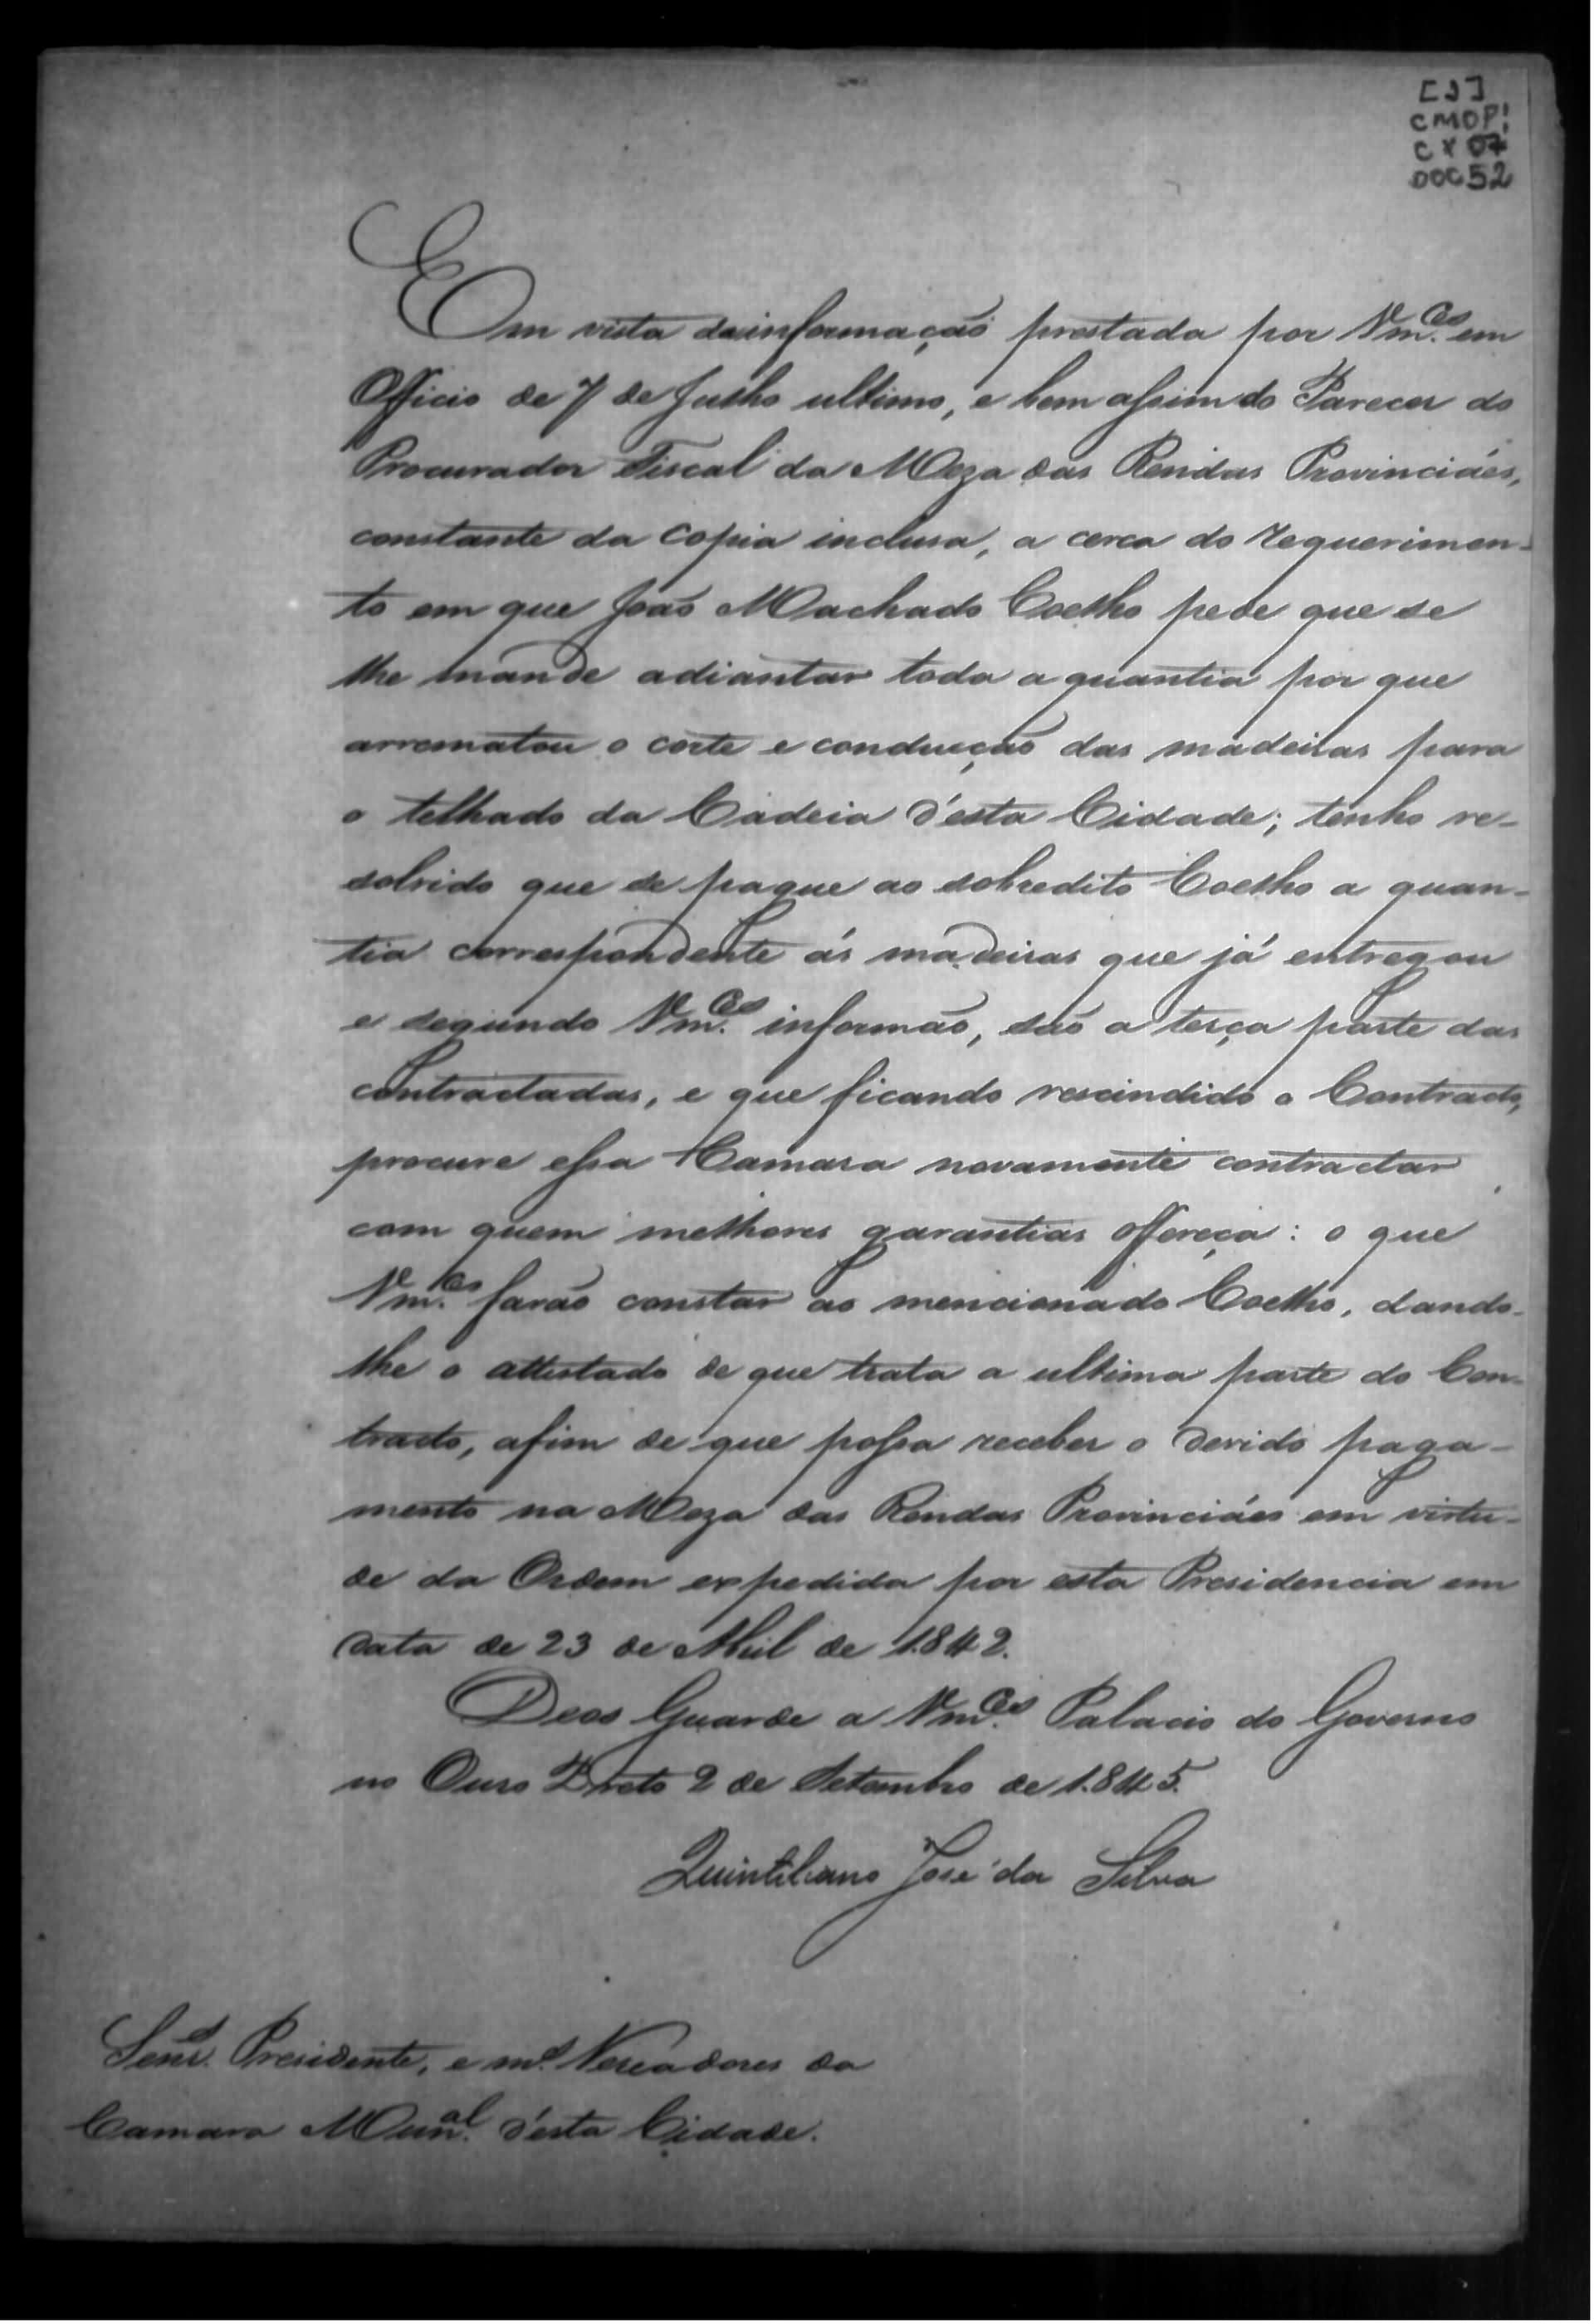 [1]
CMOP!
CX 07
DOC 52
Em vista da informação prestada por Vm.ces em
Officio de 7 de Julho ultimo, e bem assim do Parecer do
Procurador Fiscal da Meza das Rendas Provinciáes,
constante da Copia inclusa, a cerca do requerimen-
to em que João Machado Coelho pede que se
lhe mande adiantar toda a quantia por que
arrematou o corte e conducção das madeiras para
o telhado da Cadeia d'esta Cidade; tenho re-
solvido que se pague ao sobredito Coelho a quan-
tia correspondente ás madeiras que já entregou
e segundo Vm.ces informão, são a terça parte das
contractadas, e que ficando rescindido o Contracto,
procure essa Camara novamente contractar
com quem melhores garantias offereça: o que
Vm.ces farão constar ao mencionado Coelho, dando-
lhe o attestado de que trata a ultima parte do Con-
tracto, afim de que possa receber o devido paga-
mento na Meza das Rendas Provinciáes em virtu-
de da Ordem expedida por esta Presidencia em
data de 23 de Abril de 1.842.
Deos Guarde a Vm.ces Palacio do Governo
no Ouro Preto 2 de Setembro de 1.845.
Quintiliano José da Silva
Senr.s Presidente, e m.s Vereadores da
Camara Mun.al d'esta Cidade.